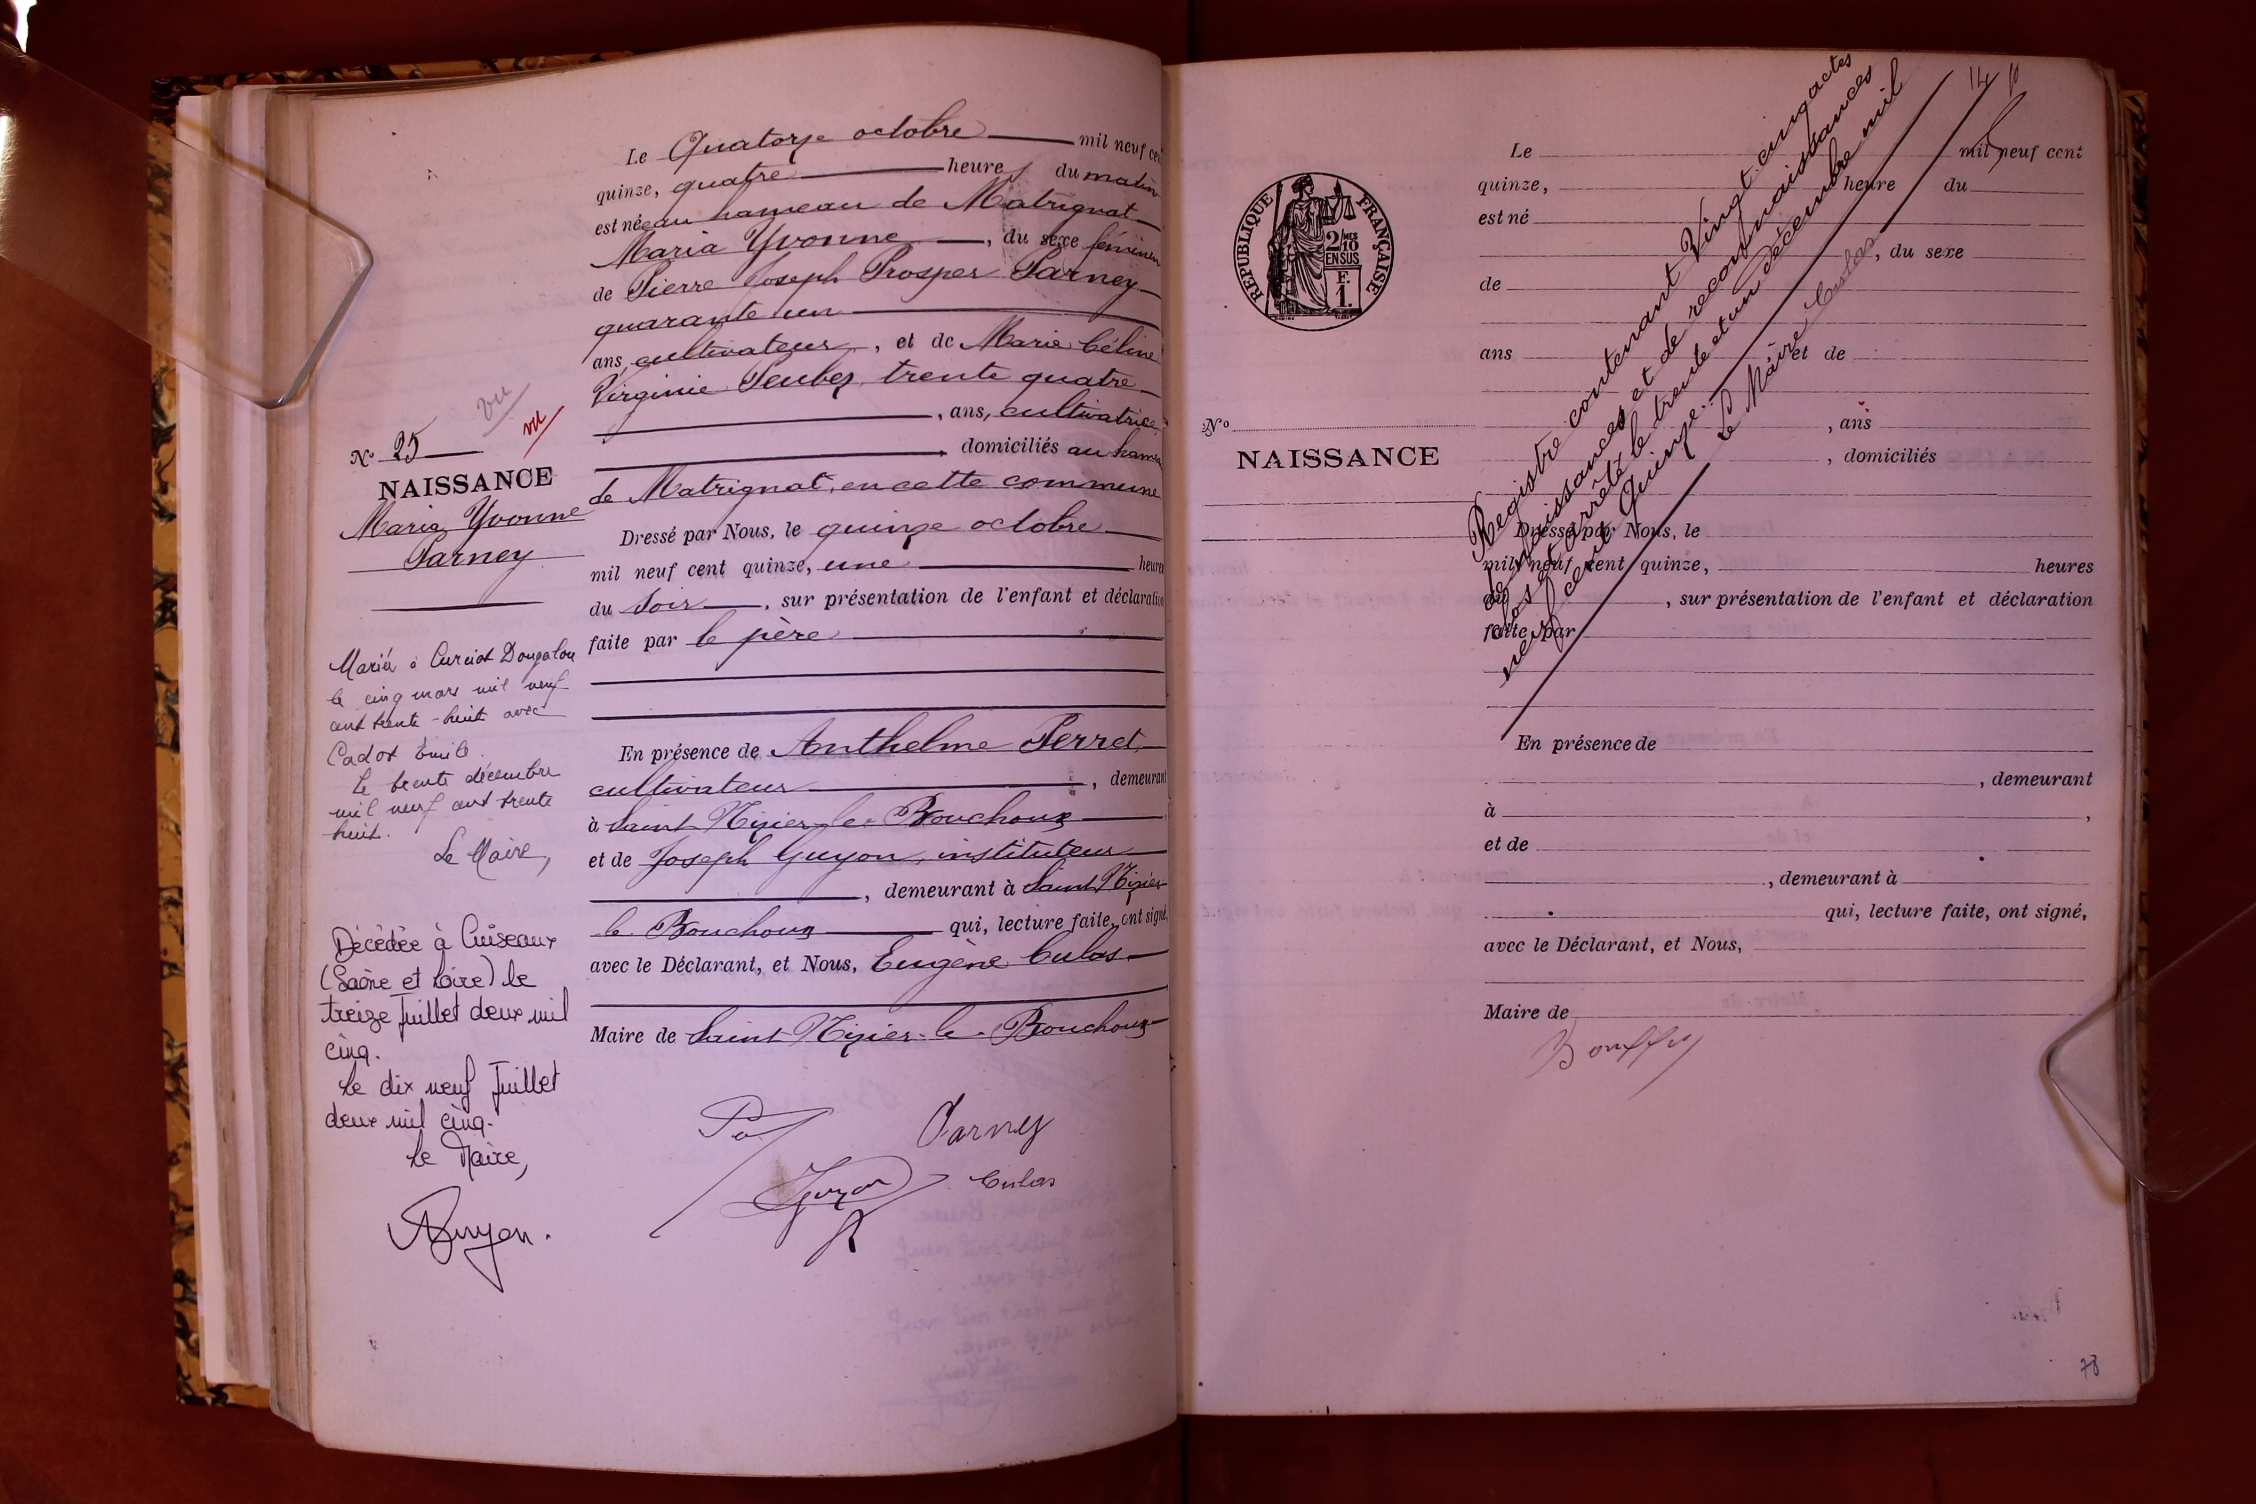 Le Quatorze octobre mil neuf cent
quinze, quatre heures du matin
est née au hameau de Matrignat
Maria Yvonne, du sexe féminin
de Pierre Joseph Prosper Parney
quarante un
ans, cultivateur, et de Marie Céline
Virginie trente quatre
, ans, cultivatrice,
, domiciliés au hameau
de Matrignat, en cette commune
Dressé par Nous, le quinze octobre
mil neuf cent quinze, une heures
du soir, sur présentation de l'enfant et déclaration
faite par le père
En présence de Anthelme Perret,
cultivateur, demeurant
à Saint Nizier-le-Bouchoux
et de Joseph Guyon, instituteur
, demeurant à Saint Nizier
le Bouchoux qui, lecture faite, ont signé,
avec le Déclarant, et Nous, Eugène Culas
Maire de Saint Nizier-le-Bouchoux
Parney
Guyon
Culas
vu
vu
No 25
NAISSANCE
Maria Yvonne
Parney
Mariée à Curciat Dongalon
le cinq mars mil neuf
cent trente-huit avec
Cadot Emile.
Le trente décembre
mil neuf cent trente
huit.
Le Maire,
Décédée à Cuiseaux
(Saône et Loire) le
treize Juillet deux mil
cinq.
Le dix neuf Juillet
deux mil cinq.
Le Maire,
14
RÉPUBLIQUE FRANÇAISE
2/10
EN SUS
F.
1.
No
NAISSANCE
Le mil neuf cent
quinze, heure du
est né
, du sexe
de
ans et de
, ans
, domiciliés
Dressé par Nous, le
mil neuf cent quinze, heures
du , sur présentation de l'enfant et déclaration
faite par
En présence de
, demeurant
à ,
et de
, demeurant à
qui, lecture faite, ont signé,
avec le Déclarant, et Nous,
Maire de
Registre contenant Vingt-cinq actes
de naissances et de reconnaissances
clos et arrêté le trente et un décembre mil
neuf cent Quinze.
Le Maire Culas
78